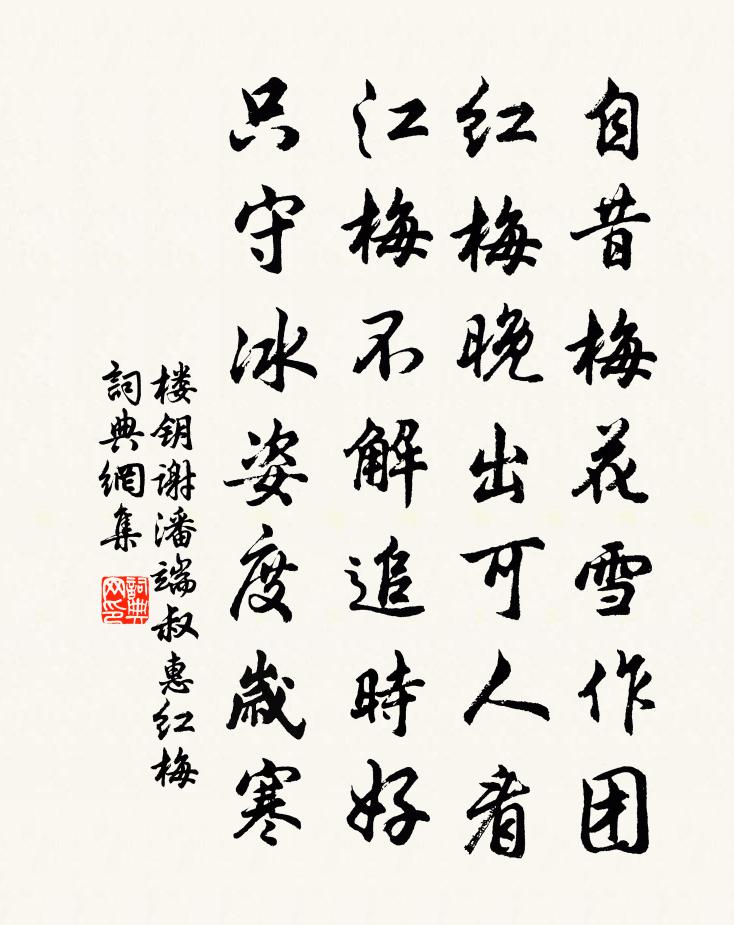 自昔梅花雪作团
红梅晚出可人看
江梅不解追時好
只守冰姿度歲寒
楼钥谢潘端叔惠红梅
詞典網集
詞典网印